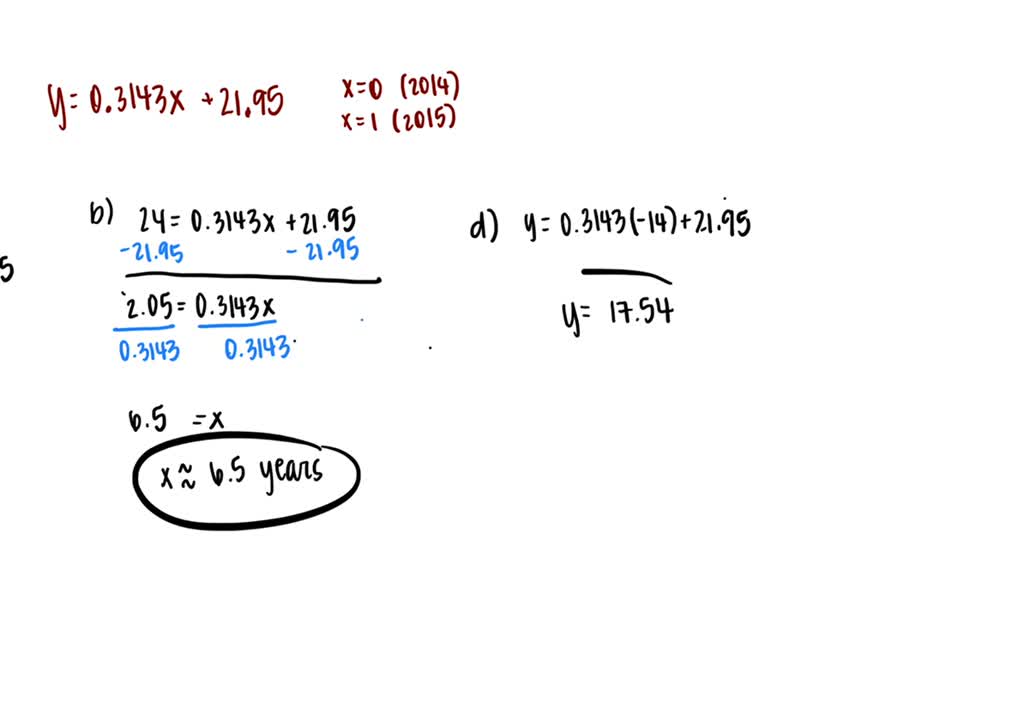 y = 0.3143x + 21.95
x=0 (2014)
x=1 (2015)
5
b) 24 = 0.3143x + 21.95
-21.95 - 21.95
2.05 = 0.3143x
0.3143 0.3143
6.5 = x
x ≈ 6.5 years
d) y = 0.3143(-14) + 21.95
y = 17.54